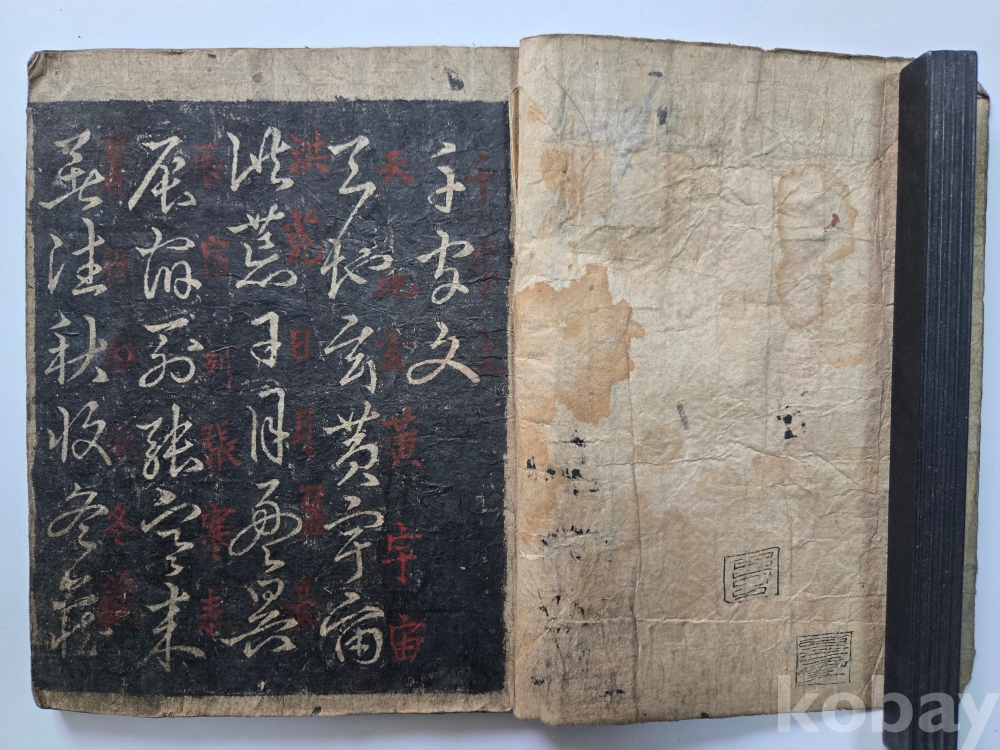 千字文
千字文
天地玄黃宇宙
天地玄黃宇宙
洪荒日月盈昃
洪荒日月盈昃
辰宿列張寒來
辰宿列張寒來
暑往秋收冬藏
暑往秋收冬藏
kobay